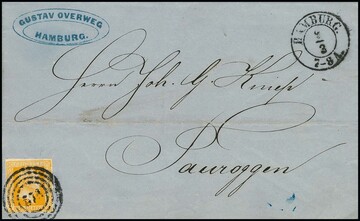 GUSTAV OVERWEG
HAMBURG.
HAMBURG.
2/3
7-8
Herrn Joh. G.
Tauroggen